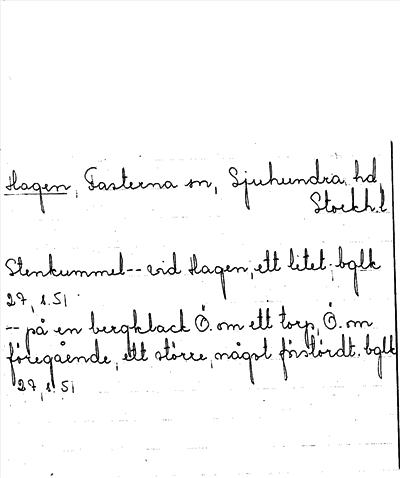 Hagen, Fasterna sn, Sjuhundra hd
Stockh.l
Stenkummel -- vid Hagen, ett litet; bglk
27, s. 51
-- på en bergklack Ö. om ett torp, Ö. om
föregående, ett större, något förstördt. bglk
27, s. 51